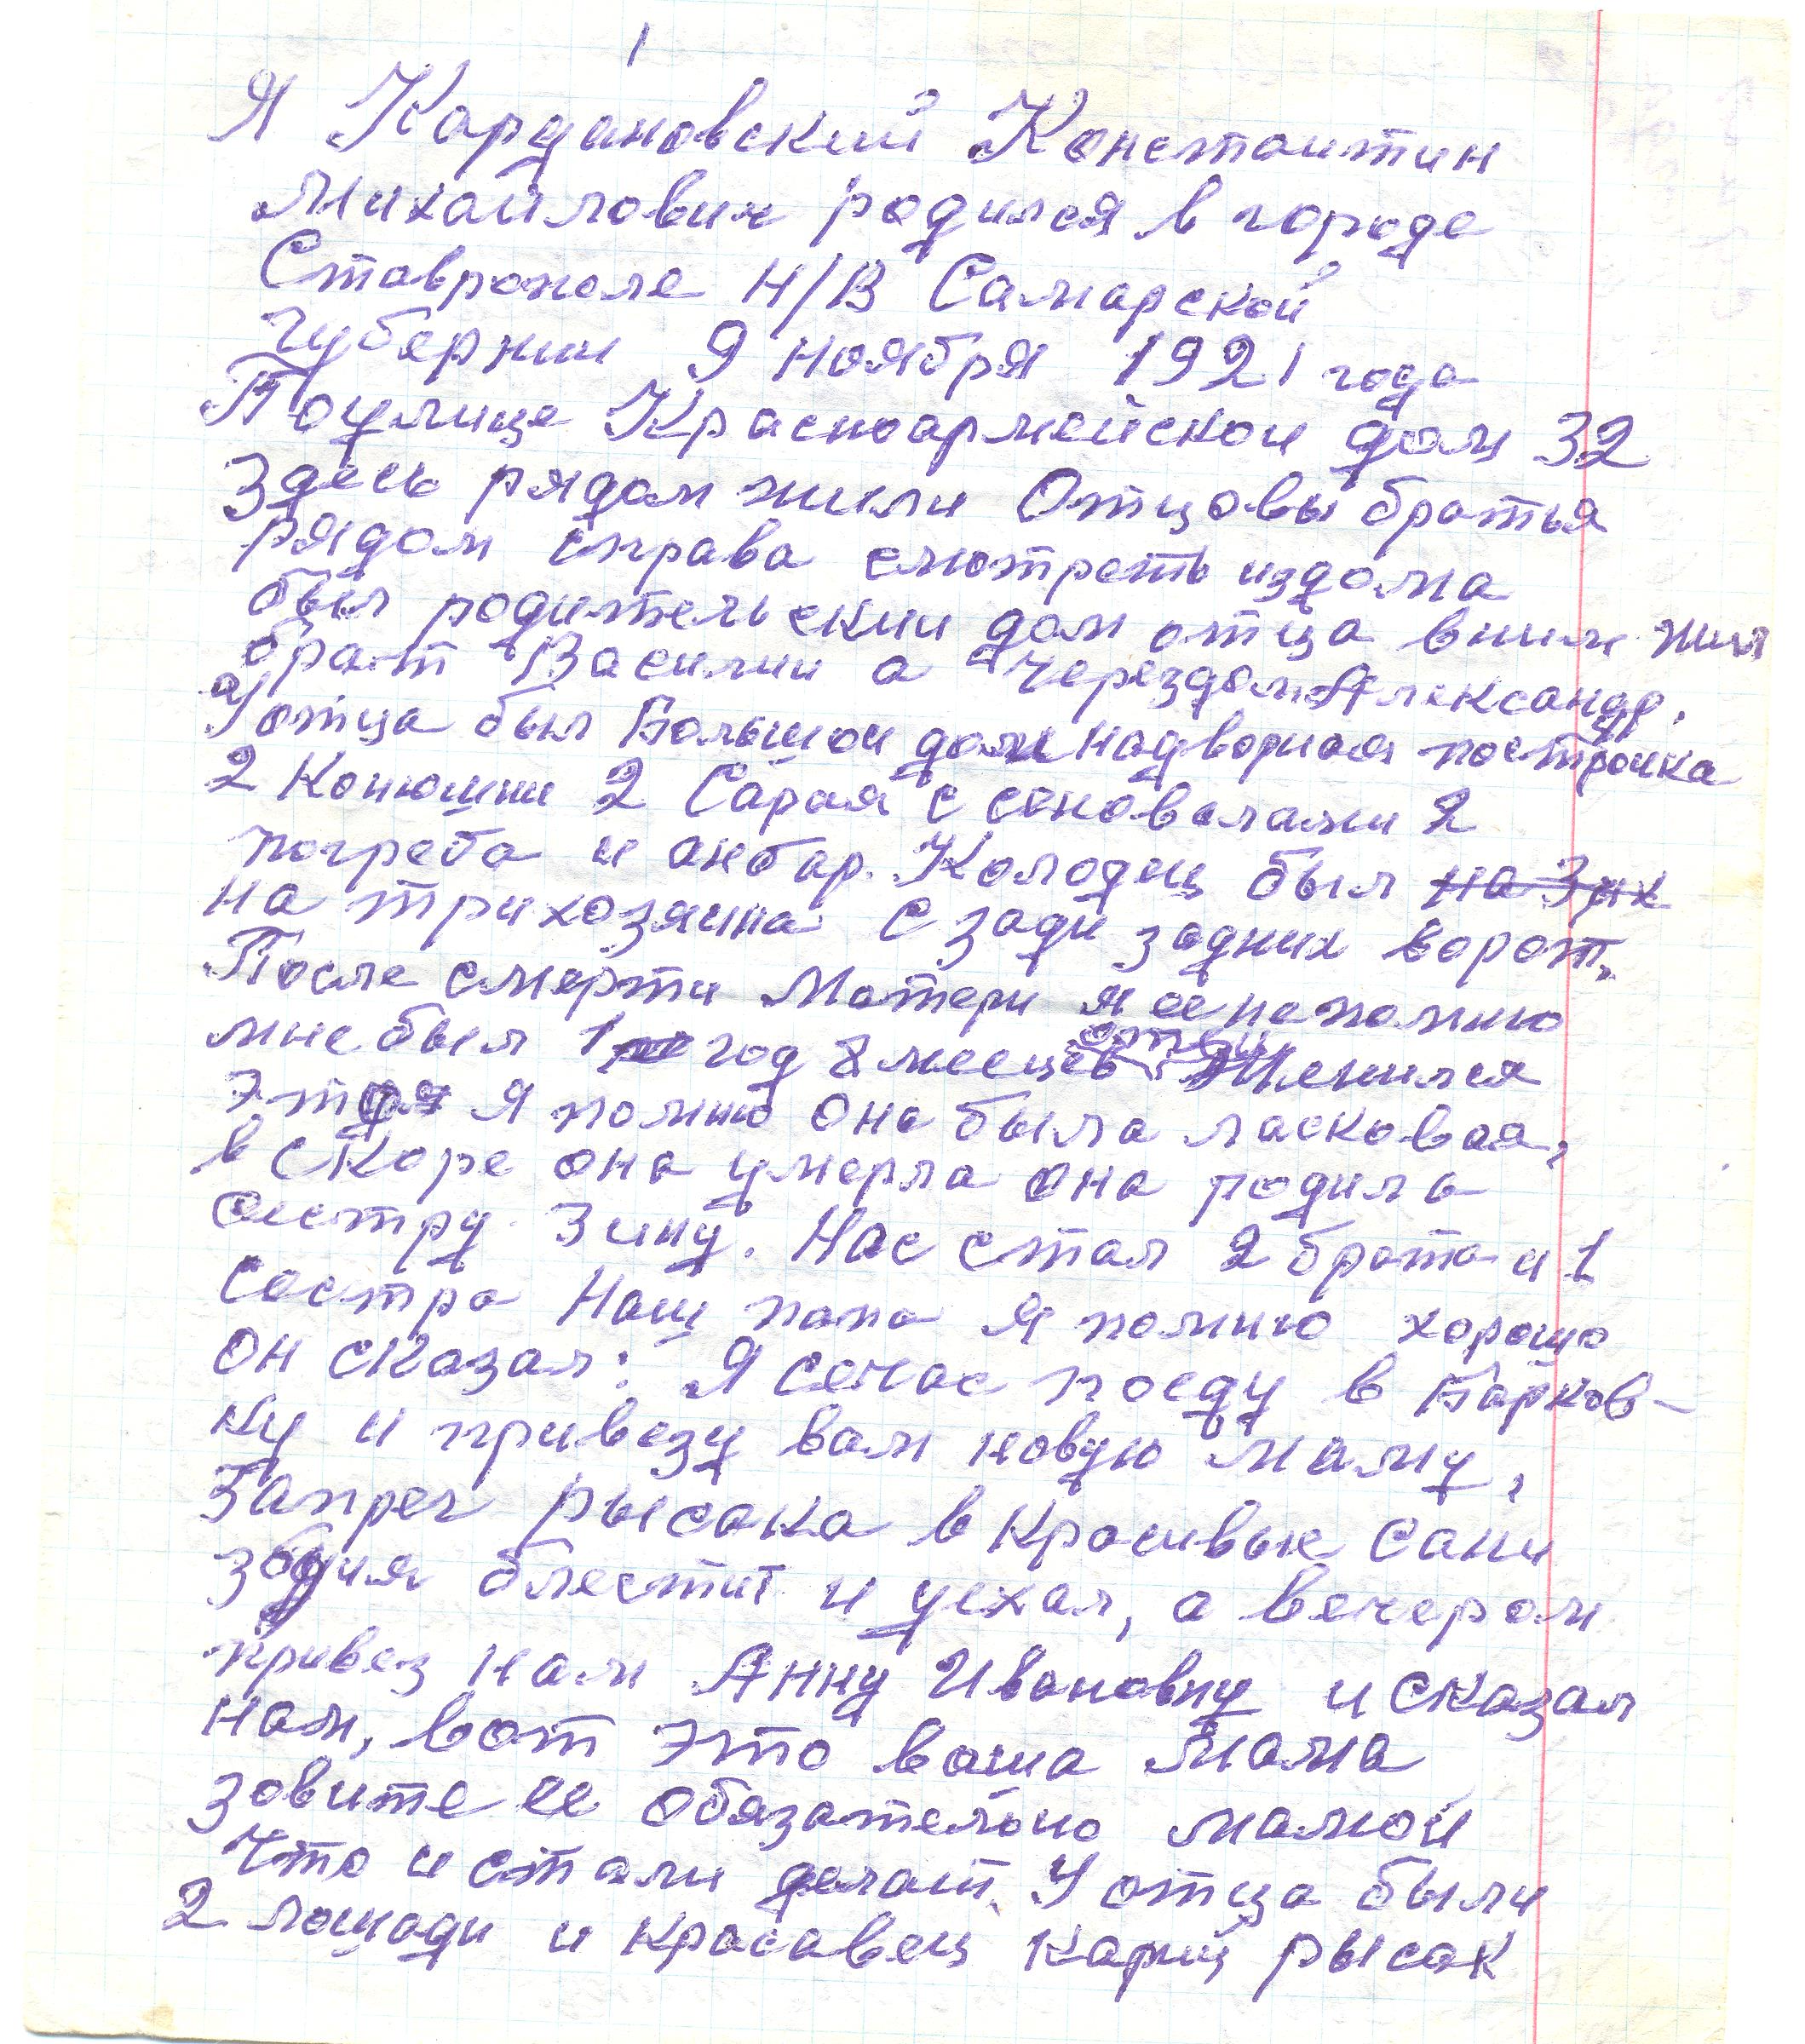 1
Я Кардановский Константин
Михайлович родился в городе
Ставрополе Н/В Самарской
губернии 9 ноября 1921 года
По улице Красноармейской дом 32
Здесь рядом жили Отцовы братья
рядом справа смотреть из дома
был родительский дом отца в ним жил
брат Василий а через дом Александр.
У отца был Большой дом надворная постройка
2 Конюшни 2 Сарая с сеновалами 2
погреба и анбар. Колодец был на 3-их
на три хозяина С зади задних ворот.
После смерти Матери я ее не помню
мне был 1 год 8 месецев отец Женился
Я помню она была ласковая,
в скоре она умерла она родила
сестру Зину. Нас стал 2 брата и 1
Сестра Наш папа я помню хорошо
он сказал: Я сечас поеду в Барков-
ку и привезу вам новую маму,
Запрег рысака в Красивые Сани
збруя блестит и уехал, а вечером
привез нам Анну Ивановну и сказал
нам, вот это ваша мама
зовите ее обязательно мамой
Что и стали делать. У отца были
2 лошади и красавец Карий рысак